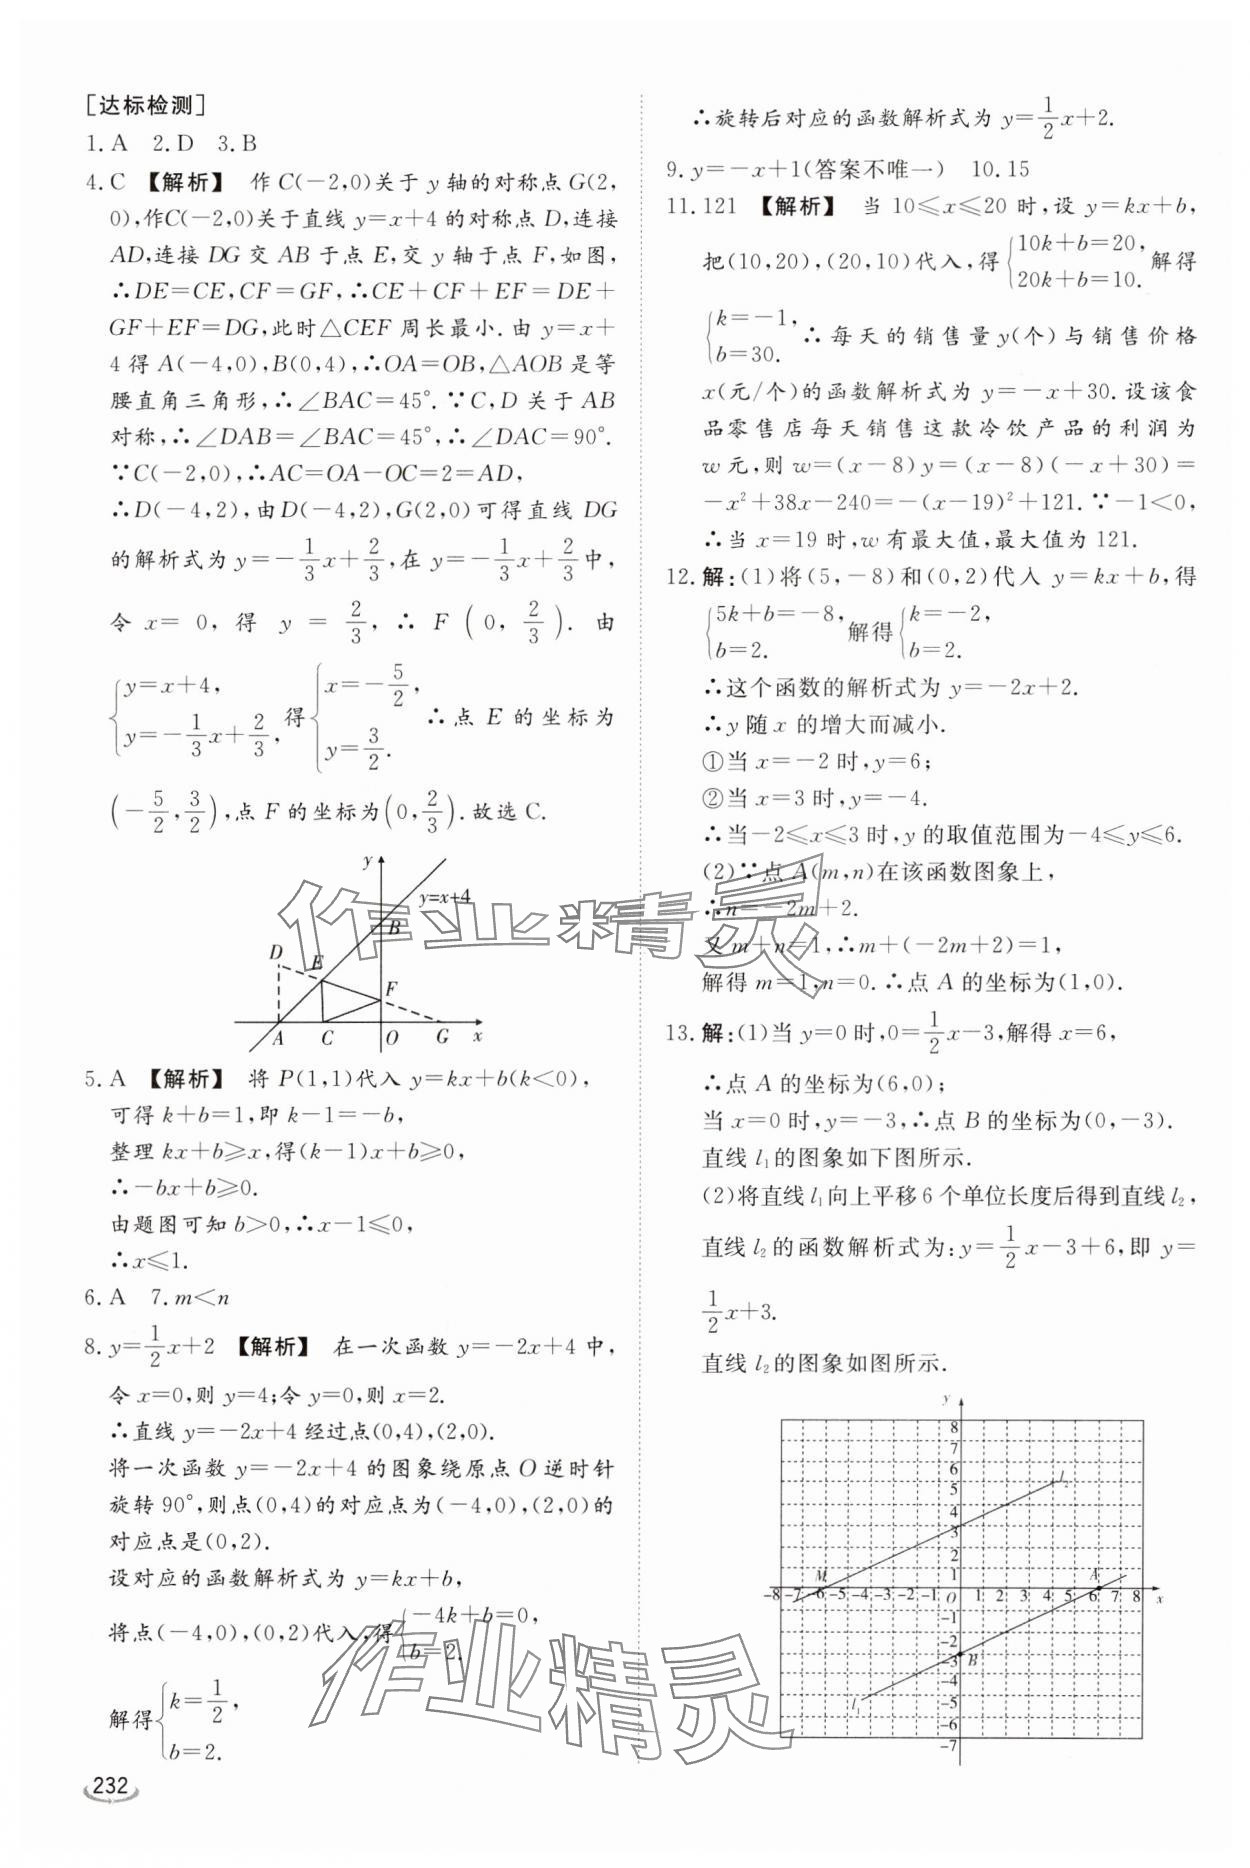 [达标检测]
1. A  2. D  3. B
4. C 【解析】 作 C(-2,0)关于 y 轴的对称点 G(2,
0),作C(-2,0)关于直线 y=x+4 的对称点 D,连接
AD,连接 DG 交 AB 于点 E,交 y 轴于点 F,如图,
∴DE=CE,CF=GF,∴CE+CF+EF=DE+
GF+EF=DG,此时△CEF 周长最小.由 y=x+
4 得 A(-4,0),B(0,4),∴OA=OB,△AOB 是等
腰直角三角形,∴∠BAC=45°.∵C,D 关于 AB
对称,∴∠DAB=∠BAC=45°,∴∠DAC=90°.
∵C(-2,0),∴AC=OA-OC=2=AD,
∴D(-4,2),由D(-4,2),G(2,0)可得直线 DG
的解析式为 y=-1/3x+2/3,在 y=-1/3x+2/3中,
令 x=0,得 y=2/3,∴F(0,2/3).由
{y=x+4, y=-1/3x+2/3,得{x=-5/2, y=3/2.∴点 E 的坐标为
(-5/2,3/2),点 F 的坐标为(0,2/3).故选 C.
y
y=x+4
B
D
E
F
A C O G x
5. A 【解析】 将 P(1,1)代入 y=kx+b(k<0),
可得 k+b=1,即 k-1=-b,
整理 kx+b≥x,得(k-1)x+b≥0,
∴-bx+b≥0.
由题图可知 b>0,∴x-1≤0,
∴x≤1.
6. A  7. m<n
8. y=1/2x+2 【解析】 在一次函数 y=-2x+4 中,
令 x=0,则 y=4;令 y=0,则 x=2.
∴直线 y=-2x+4 经过点(0,4),(2,0).
将一次函数 y=-2x+4 的图象绕原点 O 逆时针
旋转 90°,则点(0,4)的对应点为(-4,0),(2,0)的
对应点是(0,2).
设对应的函数解析式为 y=kx+b,
将点(-4,0),(0,2)代入,得{-4k+b=0, b=2.
解得{k=1/2, b=2.
232
∴旋转后对应的函数解析式为 y=1/2x+2.
9. y=-x+1(答案不唯一)  10. 15
11. 121 【解析】 当 10≤x≤20 时,设 y=kx+b,
把(10,20),(20,10)代入,得{10k+b=20, 20k+b=10.解得
{k=-1, b=30.∴每天的销售量 y(个)与销售价格
x(元/个)的函数解析式为 y=-x+30.设该食
品零售店每天销售这款冷饮产品的利润为
w 元,则 w=(x-8)y=(x-8)(-x+30)=
-x²+38x-240=-(x-19)²+121.∵-1<0,
∴当 x=19 时,w 有最大值,最大值为 121.
12. 解:(1)将(5,-8)和(0,2)代入 y=kx+b,得
{5k+b=-8, b=2.解得{k=-2, b=2.
∴这个函数的解析式为 y=-2x+2.
∴y 随 x 的增大而减小.
①当 x=-2 时,y=6;
②当 x=3 时,y=-4.
∴当-2≤x≤3 时,y 的取值范围为-4≤y≤6.
(2)∵点 A(m,n)在该函数图象上,
∴n=-2m+2.
又 m+n=1,∴m+(-2m+2)=1,
解得 m=1,n=0.∴点 A 的坐标为(1,0).
13. 解:(1)当 y=0 时,0=1/2x-3,解得 x=6,
∴点 A 的坐标为(6,0);
当 x=0 时,y=-3,∴点 B 的坐标为(0,-3).
直线 l₁的图象如下图所示.
(2)将直线 l₁向上平移 6 个单位长度后得到直线 l₂,
直线 l₂的函数解析式为:y=1/2x-3+6,即 y=
1/2x+3.
直线 l₂的图象如图所示.
y
8
7
6
5
4
3
2
1
l₂
M
A
-8 -7 -6 -5 -4 -3 -2 -1 O 1 2 3 4 5 6 7 8 x
-1
-2
-3
B
-4
-5
-6
-7
l₁
作业精灵
作业精灵